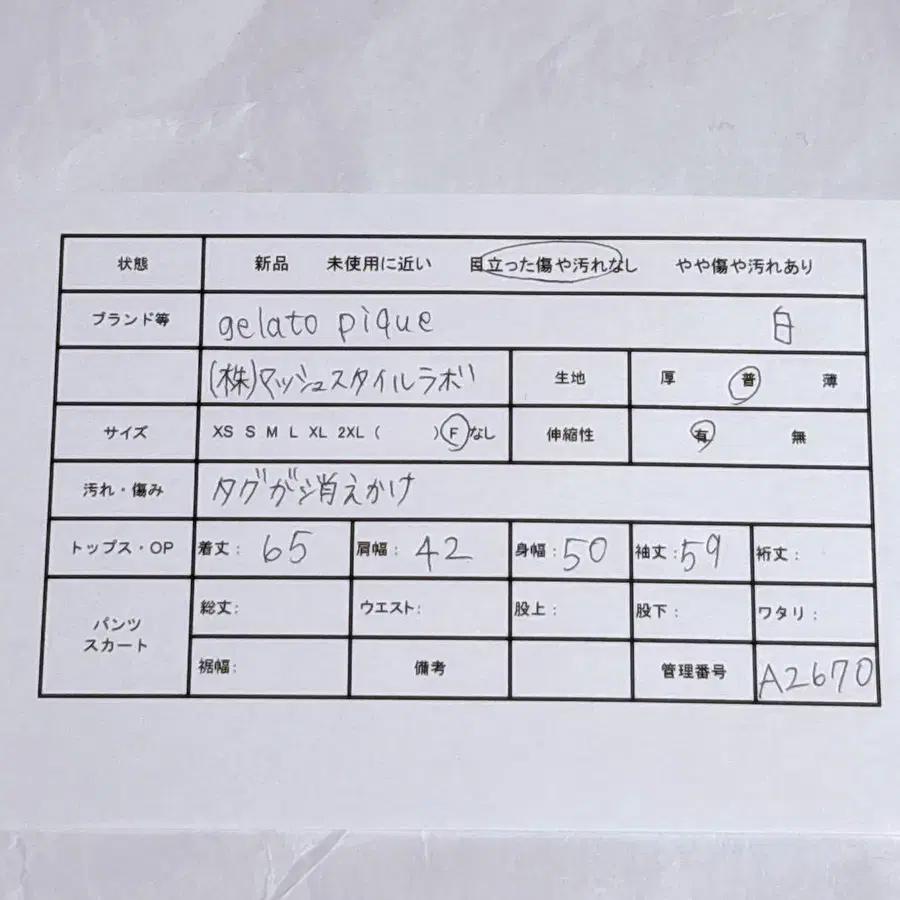 状態 新品 未使用に近い 目立った傷や汚れなし やや傷や汚れあり
ブランド等 gelato pique 白
(株)マッシュスタイルラボ 生地 厚 普 薄
サイズ XS S M L XL 2XL ( ) F なし 伸縮性 有 無
汚れ・傷み タグが消えかけ
トップス・OP 着丈: 65 肩幅: 42 身幅: 50 袖丈: 59 裄丈:
パンツ
スカート
総丈: ウエスト: 股上: 股下: ワタリ:
裾幅: 備考 管理番号 A2670